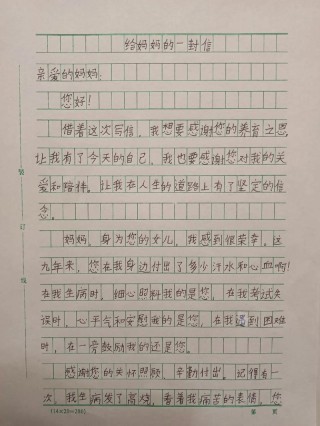 给妈妈的一封信
亲爱的妈妈:
您好!
借着这次写信,我想要感谢您的养育之恩,
让我有了今天的自己,我也要感谢您对我的关
爱和陪伴,让我在人生的道路上有了坚定的信
念。
妈妈,身为您的女儿,我感到很荣幸。这
九年来,您在我身边付出了多少汗水和心血啊!
在我生病时,细心照料我的是您,在我考试失
误时,心平气和安慰我的是您,在我遇到困难
时,在一旁鼓励我的还是您。
感谢您的关怀照顾,辛勤付出。记得有一
次,我生病发了高烧,看着我痛苦的表情,您
装
订
线
(14×20=280)
第 页